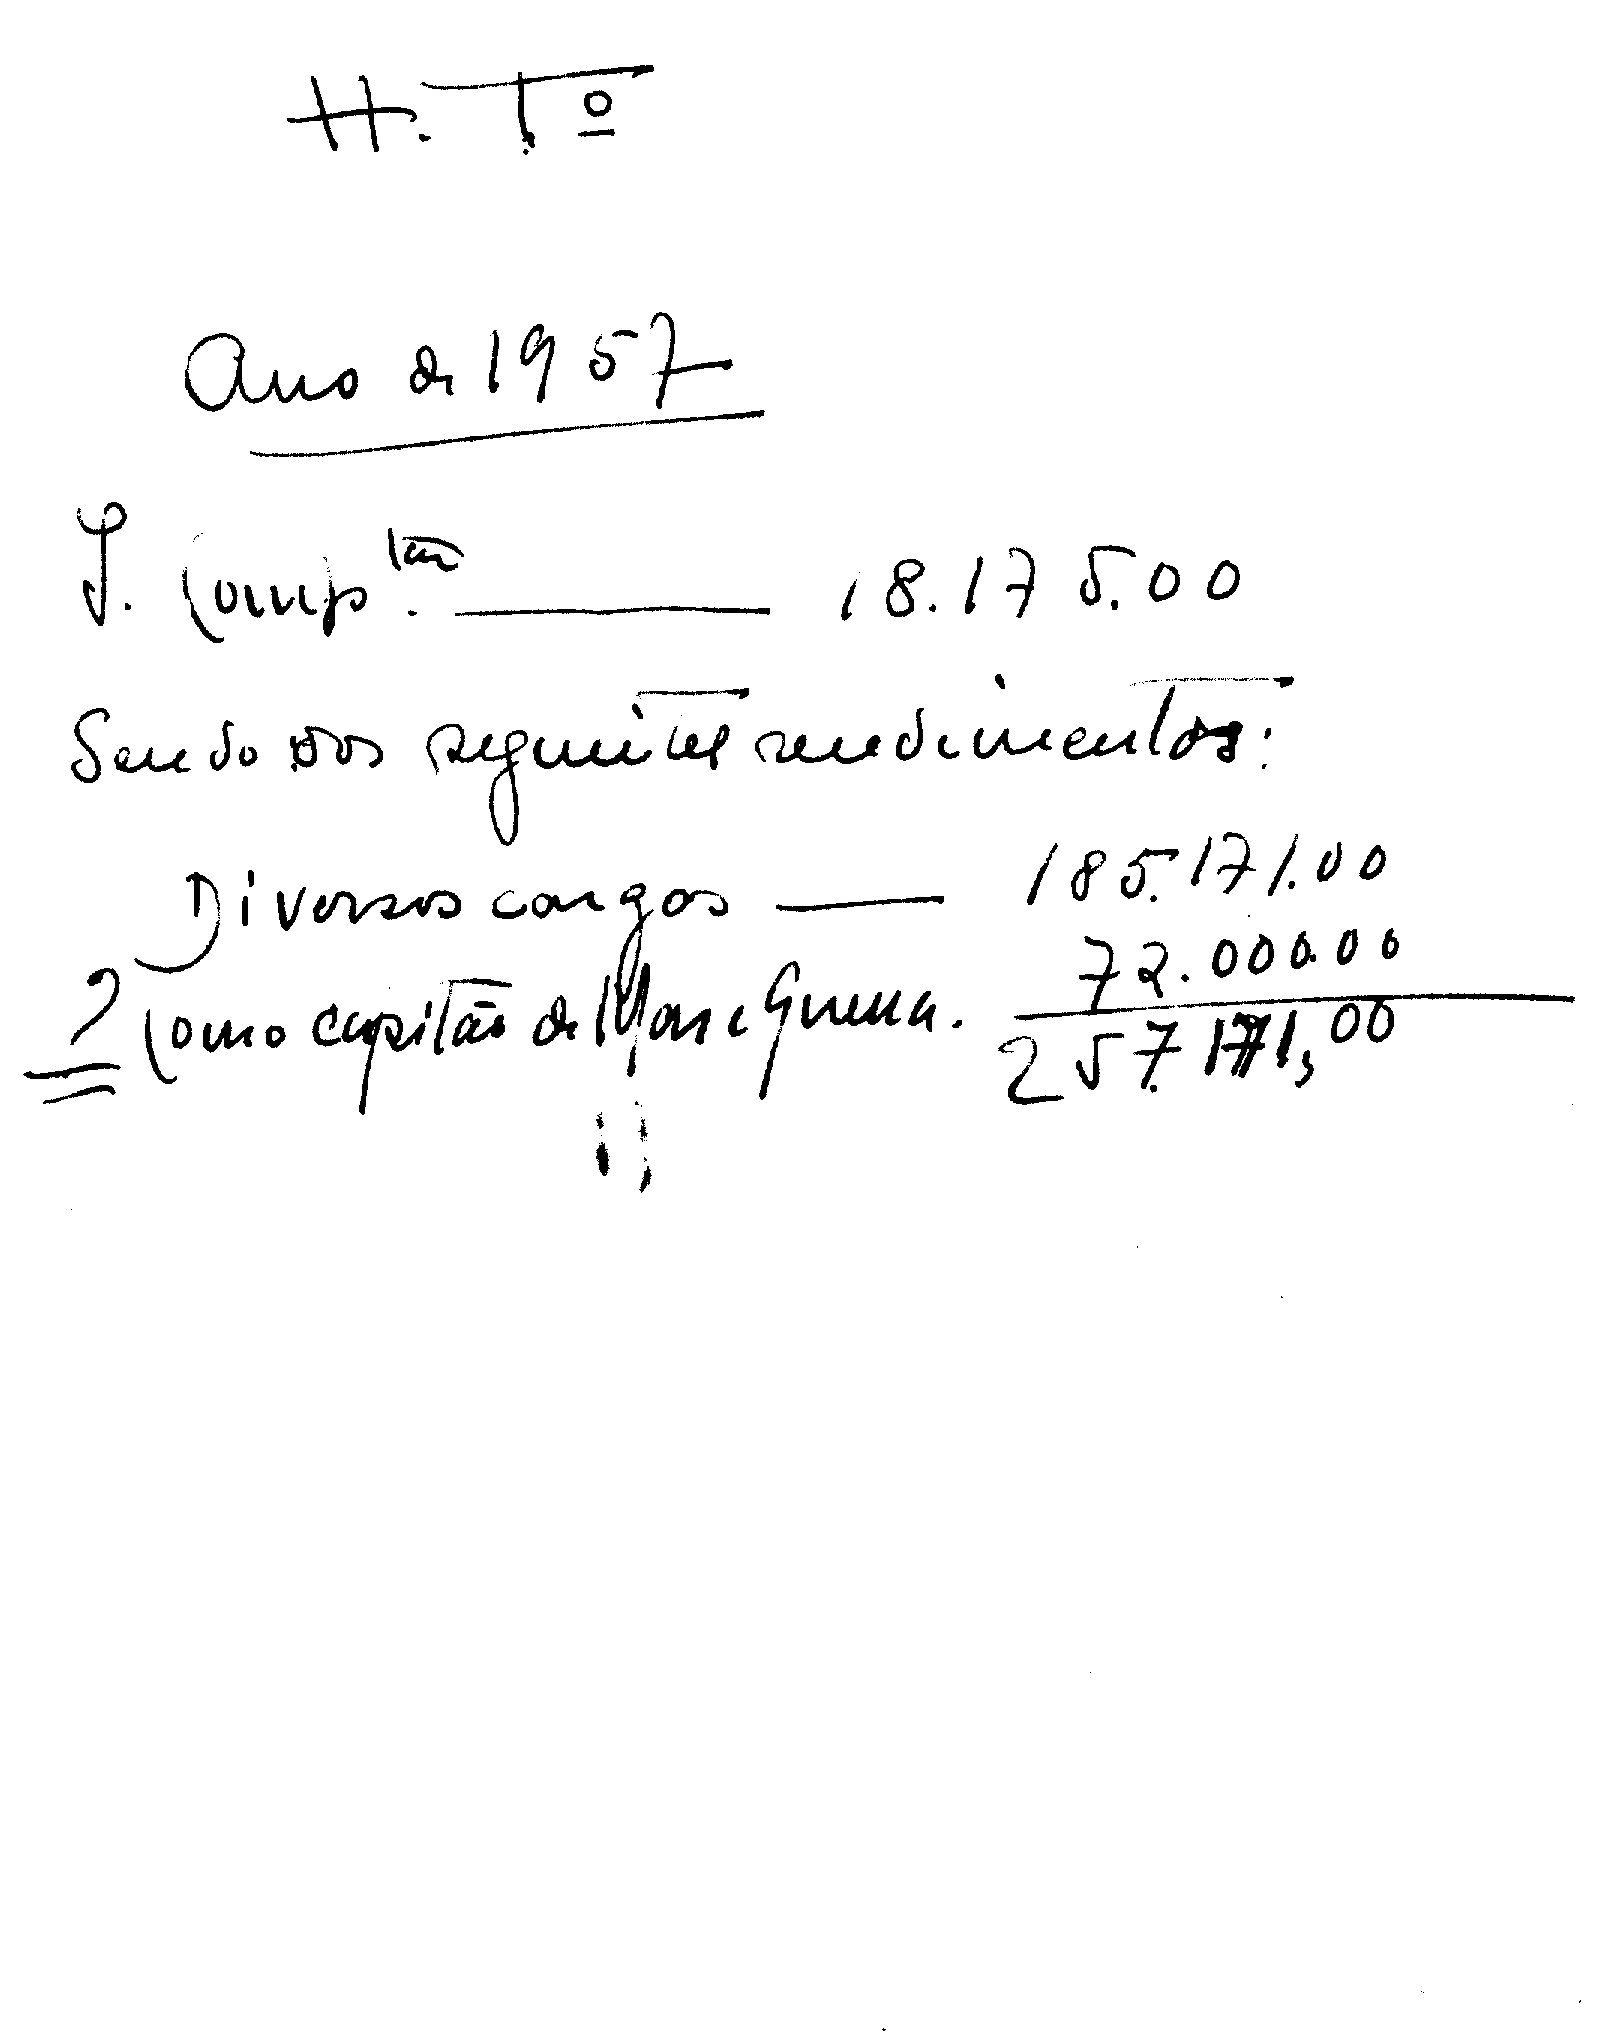 H. Tº
Ano de 1957
I. Comp.tar 18.175.00
Sendo dos seguintes rendimentos:
Diversos cargos — 185.171.00
72.000.00
? Como capitão de Mar e Guerra.
257.171,00